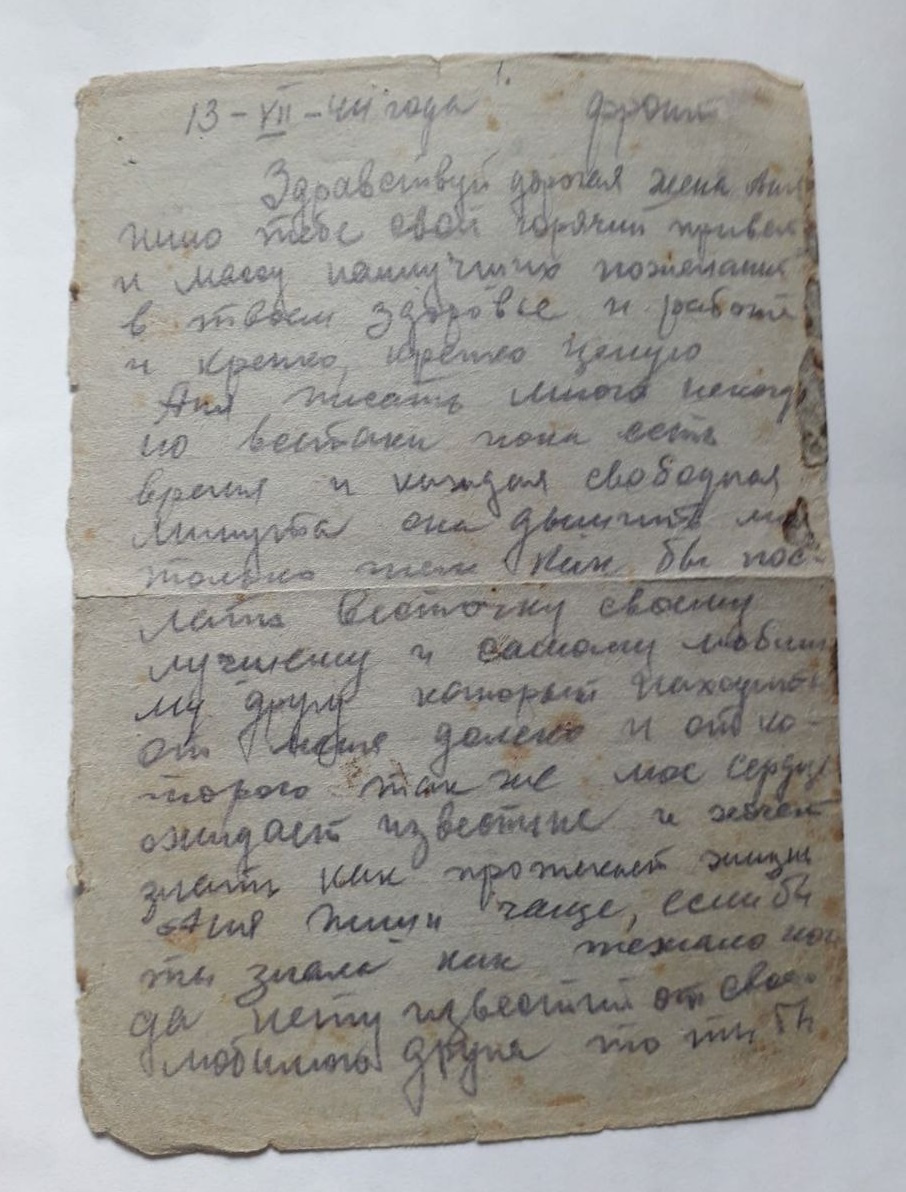 1.
13-VII-44 года фронт
Здравствуй дорогая жена Аня
пишу тебе свой горячий привет
и массу наилучших пожеланий
в твоем здоровье и работе
и крепко, крепко целую
Аня писать много некогда
но всетаки пока есть
время и каждая свободная
минута она дышить
только тем как бы пос-
лать весточку своему
лучшему и самому любим
му другу который находить
от меня далеко и от ко-
торого так же мое сердце
ожидает известие и хочет
знать как протекает жизнь
Аня пиши чаще, если бы
ты знала как тежало ког
да нету известий от свое-
любимого друга то ты бы